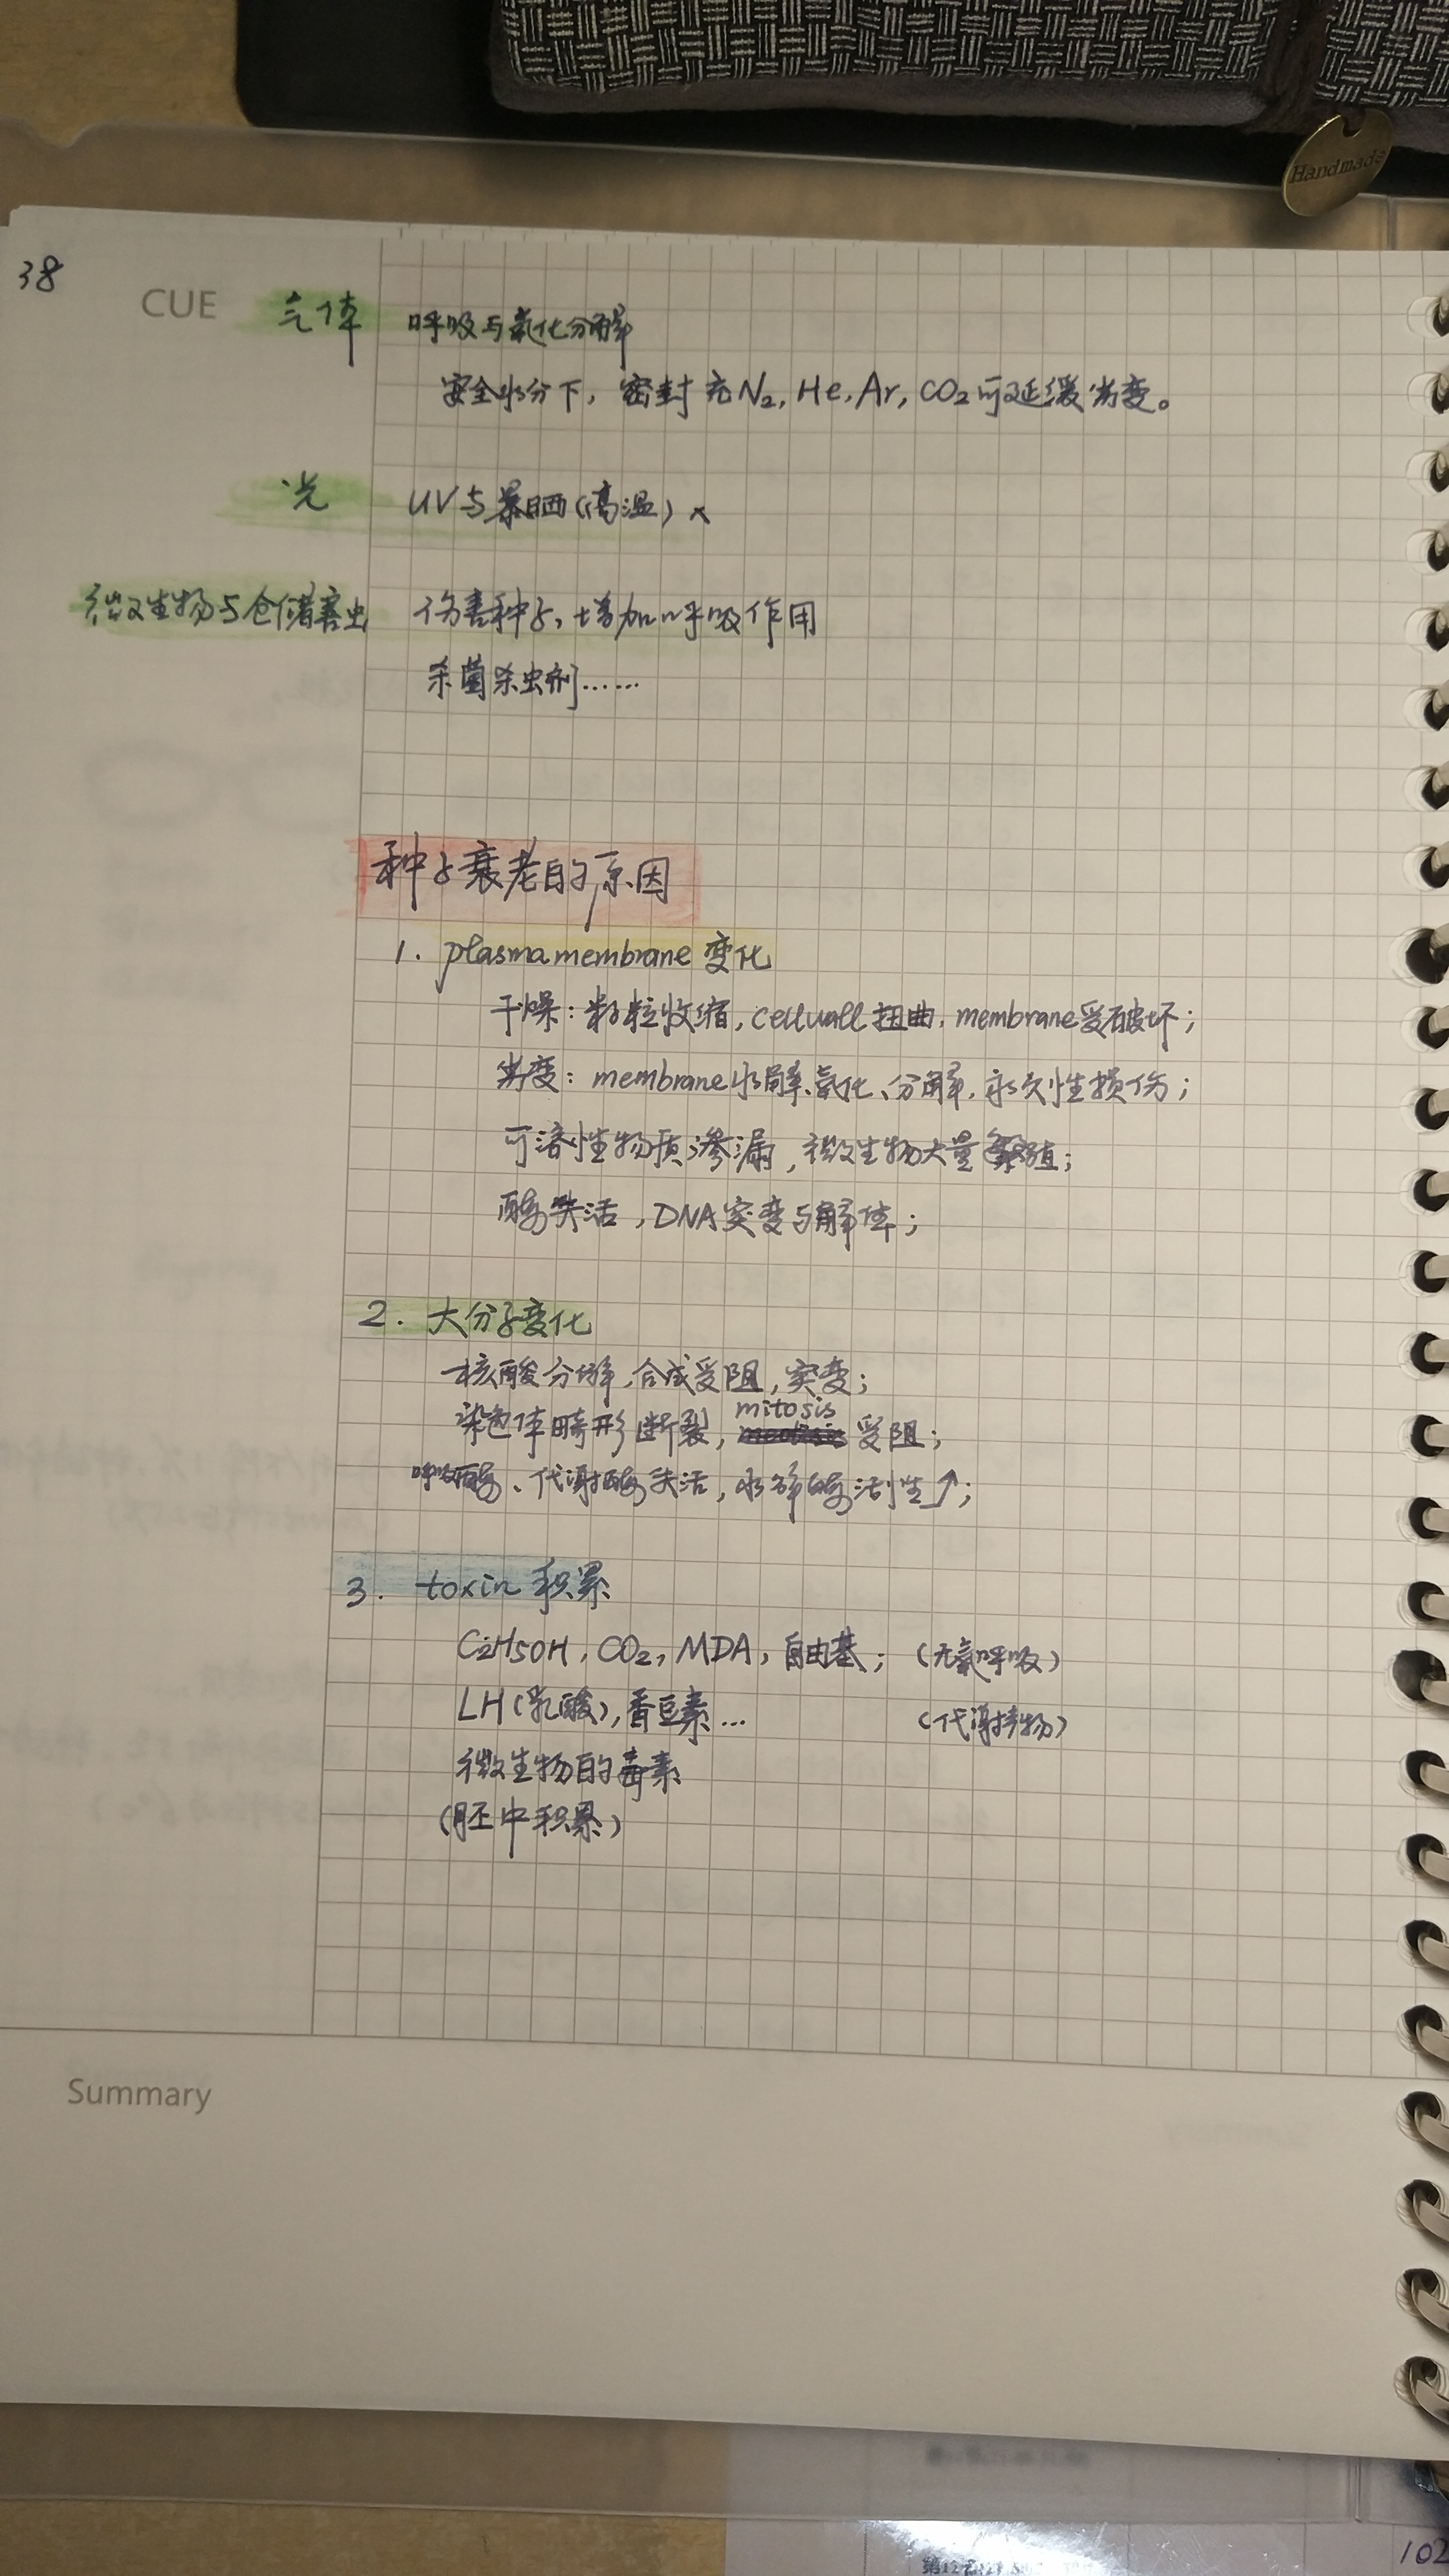 Handmade
38
CUE
气体 呼吸与氧化分解
安全水分下，密封充N₂, He, Ar, CO₂可延缓劣变。
光 UV与暴晒(高温) ×
微生物与仓储害虫 伤害种子，增加呼吸作用
杀菌杀虫剂……
种子衰老的原因
1. plasma membrane 变化
干燥：籽粒收缩, cell wall 扭曲, membrane受破坏；
劣变：membrane水解、氧化、分解, 永久性损伤；
可溶性物质渗漏, 微生物大量繁殖；
酶失活, DNA突变与解体；
2. 大分子变化
核酸分解, 合成受阻, 突变；
染色体畸形断裂, mitosis 受阻；
呼吸酶、代谢酶失活, 水解酶活性↑；
3. toxin 积累
C₂H₅OH, CO₂, MDA, 自由基； (无氧呼吸)
LH(乳酸), 香豆素… (代谢产物)
微生物的毒素
(胚中积累)
Summary
102